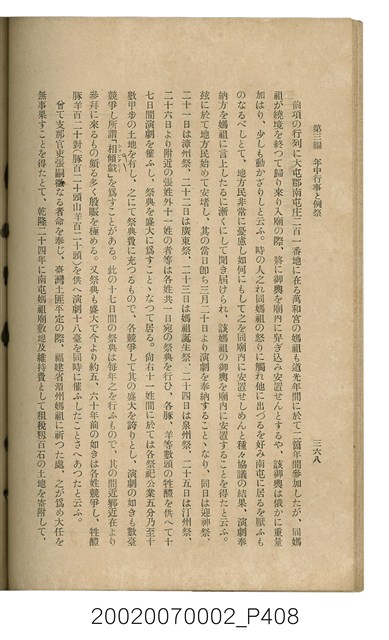 第三編　年中行事と例祭
三六八
前項の行列に大屯郡南屯庄二百一番地に在る萬和宮の媽祖も道光年間に於て二箇年間參加したが、同媽
祖が繞境を終つて歸り來り入廟の際、將に御輿を廟內に舁ぎ込み安置せんとするや、該御輿は俄かに重量
加はり、少しも動かざりしと云ふ。時の人之れ同媽祖の怒りに觸れ他に出づるを好み南屯に居るを厭ふも
のなるべしとて、地方民非常に憂慮し如何にもして之を同廟內に安置せしめんと種々協議の結果、演劇奉
納方を媽祖に言上したるに漸くにして聞き屆けられ、該媽祖の御輿を廟內に安置することを得たと云ふ。
玆に於て地方民始めて安堵し、其の當日卽ち三月二十日より演劇を奉納することゝなり、同日は迎神祭、
二十一日は漳州祭、二十二日は廣東祭、二十三日は媽祖誕生祭、二十四日は泉州祭、二十五日は汀州祭、
二十六日より附近の張姓外十一姓の者等は各姓共一日宛の祭典を行ひ、各豚、羊等數頭の牲醴を供へて十
七日間演劇を催ふし、祭典を盛大に爲すことゝなつて居る。尙右十一姓間に於ては各祭祀公業五分乃至十
數甲步の土地を有し、之にて祭典費に充つるもので、各競爭して其の盛大を誇りとし、演劇の如きも數臺
競爭し所謂「相傾戲」を爲すことがある。此の十七日間の祭典は每年之を行ふもので、其の間近鄕近在より
參拜に來るもの頗る多く殷賑を極める。又祭典も盛大で今より約五、六十年前の如きは各姓競爭し、牲醴
豚羊百二十對（豚百二十頭山羊百二十頭）を供へ演劇十八臺を同時に催ふしたことさへあつたと云ふ。
曾て支那官吏張嗣徽なる者命を奉じ、臺灣土匪平定の際、福建省湄州媽祖に祈つた處、之が爲め大任を
無事果すことを得たとて、乾隆二十四年に南屯媽祖廟敷地及維持費として租稅粗百石の土地を寄附して、
20020070002_P408